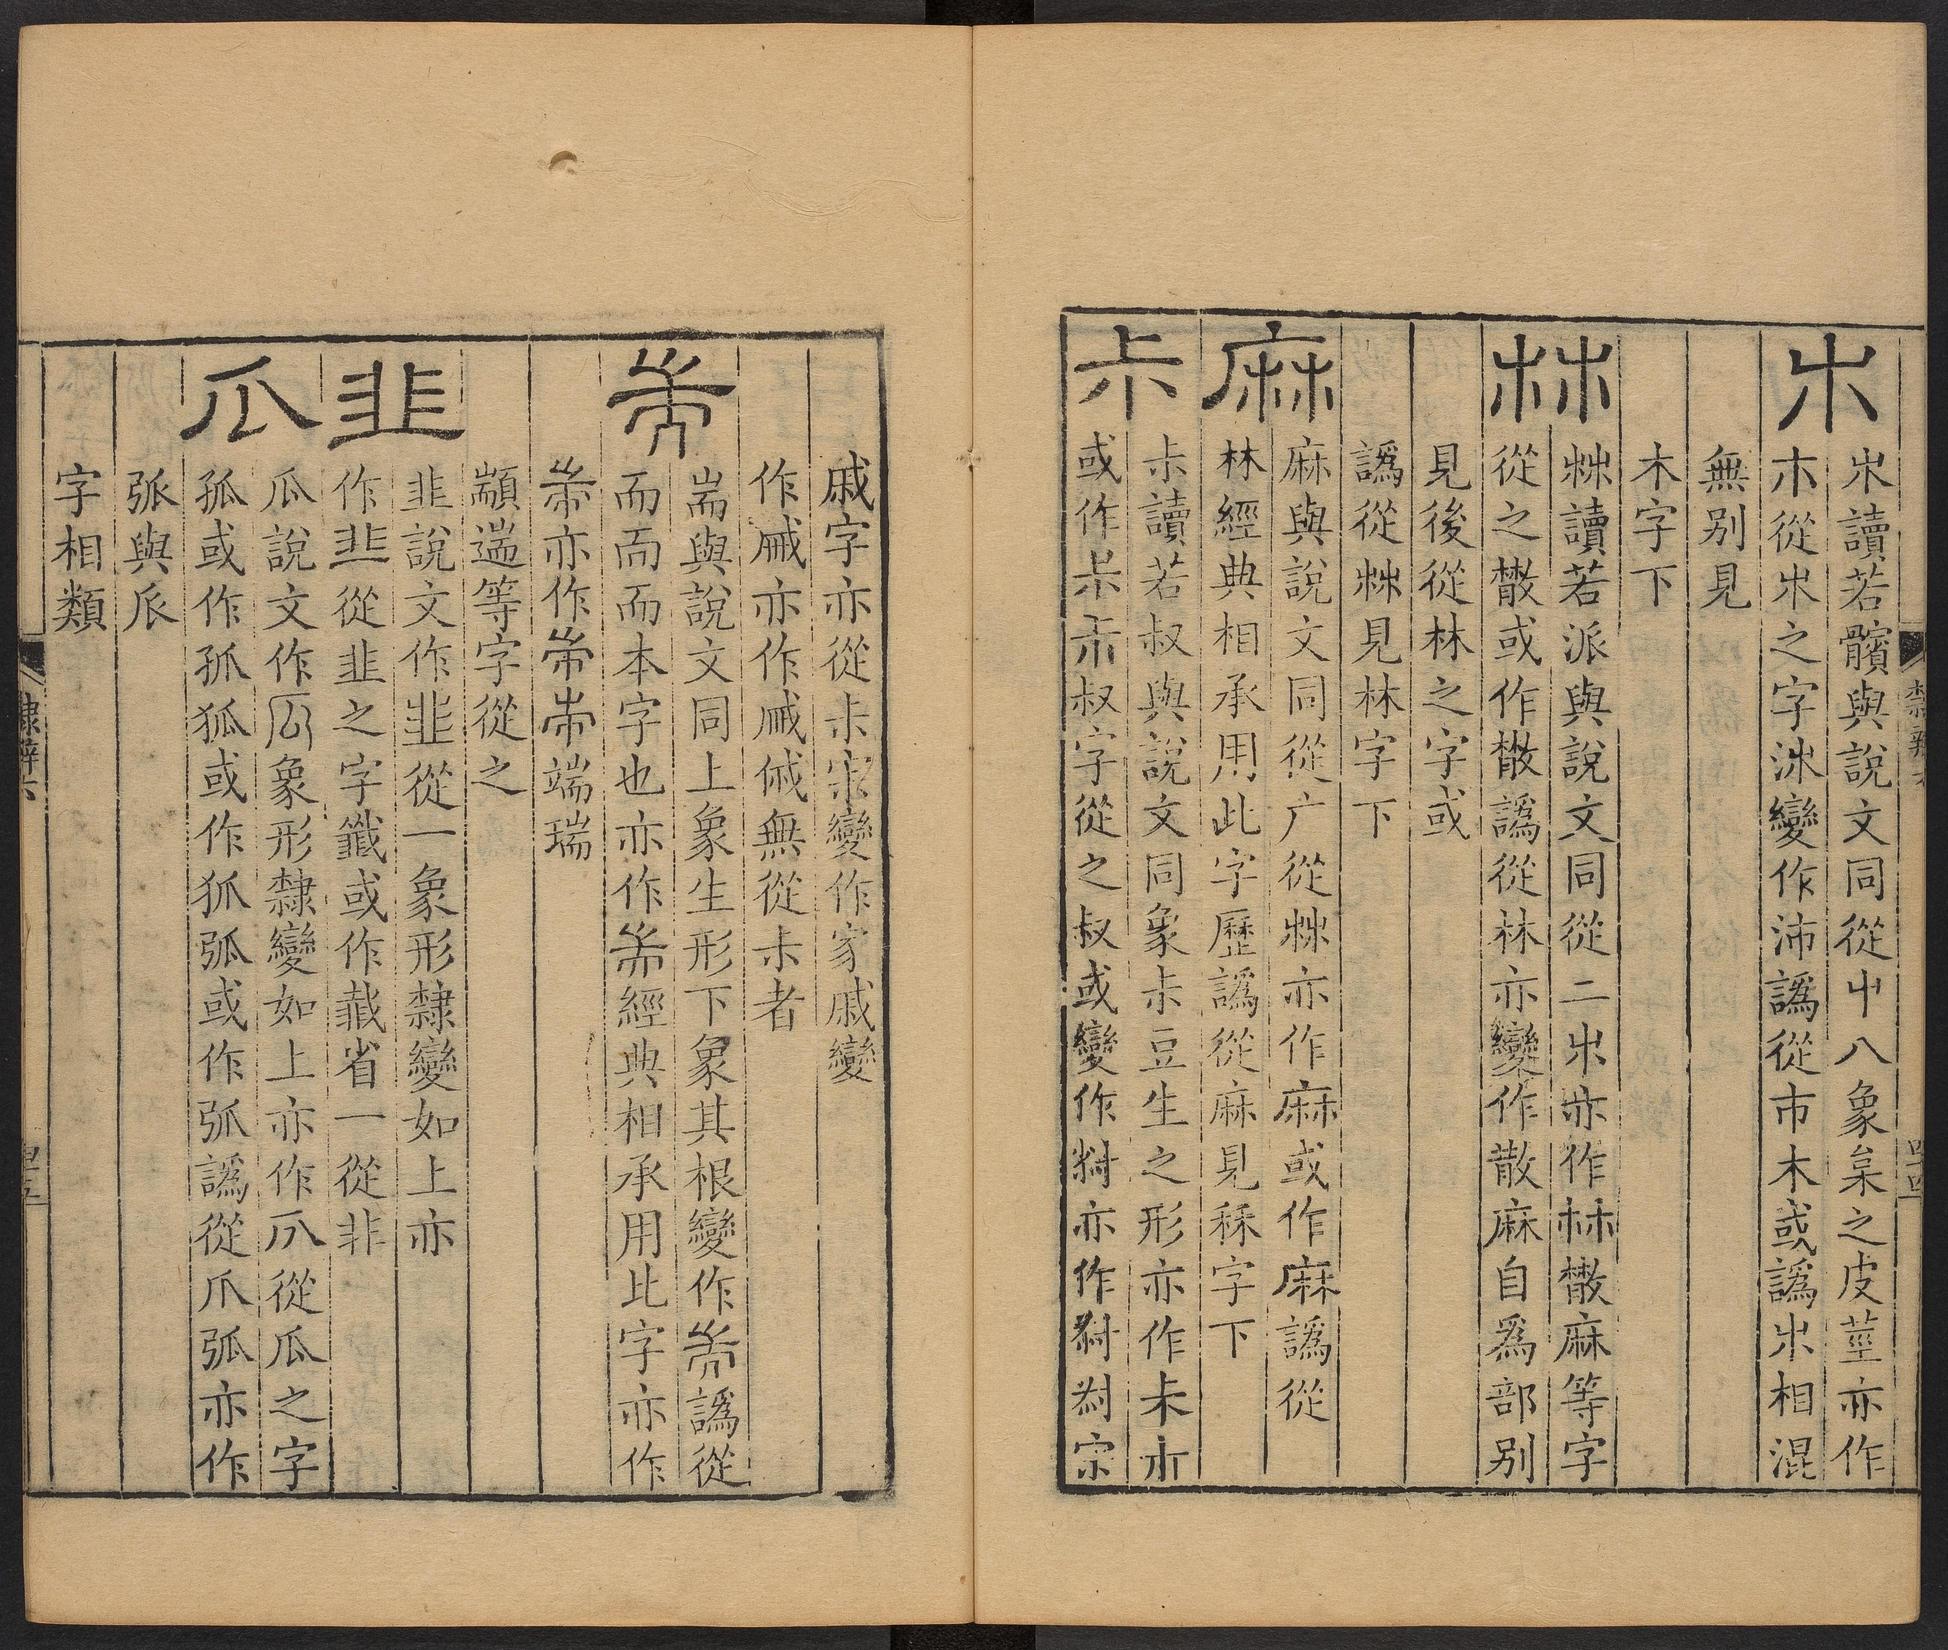 𣎳
𣎳讀若髕與說文同從屮八象枲之皮莖亦作
朩從𣎳之字沭變作沛譌從市木或譌𣎳相混
無别見
木字下
𣏟
𣏟讀若派與說文同從二𣎳亦作林㪔麻等字
從之㪔或作㪔譌從林亦變作散麻自爲部别
見後從林之字或
譌從𣏟見林字下
麻
麻與說文同從广從𣏟亦作麻或作麻譌從
林經典相承用此字歷譌從麻見秝字下
尗
尗讀若叔與說文同象尗豆生之形亦作未朩
或作尗叔字從之叔或變作亦作宗
戚字亦從尗宗變作家戚變
作戚亦作戚傶無從尗者
耑
耑與說文同上象生形下象其根變作耑譌從
而而而本字也亦作耑經典相承用此字亦作
耑亦作耑耑端瑞
顓遄等字從之
韭
韭說文作韭從一象形隸變如上亦
作韭從韭之字韱或作韱省一從非
瓜
瓜說文作瓜象形隸變如上亦作𠂢從瓜之字
孤或作孤狐或作狐弧或作弧譌從爪弧亦作
弧與𠂢
字相類
隸辨六
四十四
隸辨六
四十五